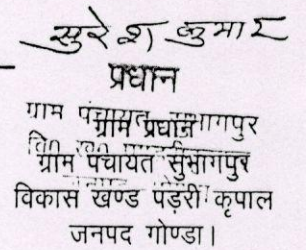 सुरेश कुमार
प्रधान
ग्राम पंचायत सुभागपुर
ग्राम प्रधान
ग्राम पंचायत सुभागपुर
विकास खण्ड पंड़री कृपाल
जनपद गोण्डा।